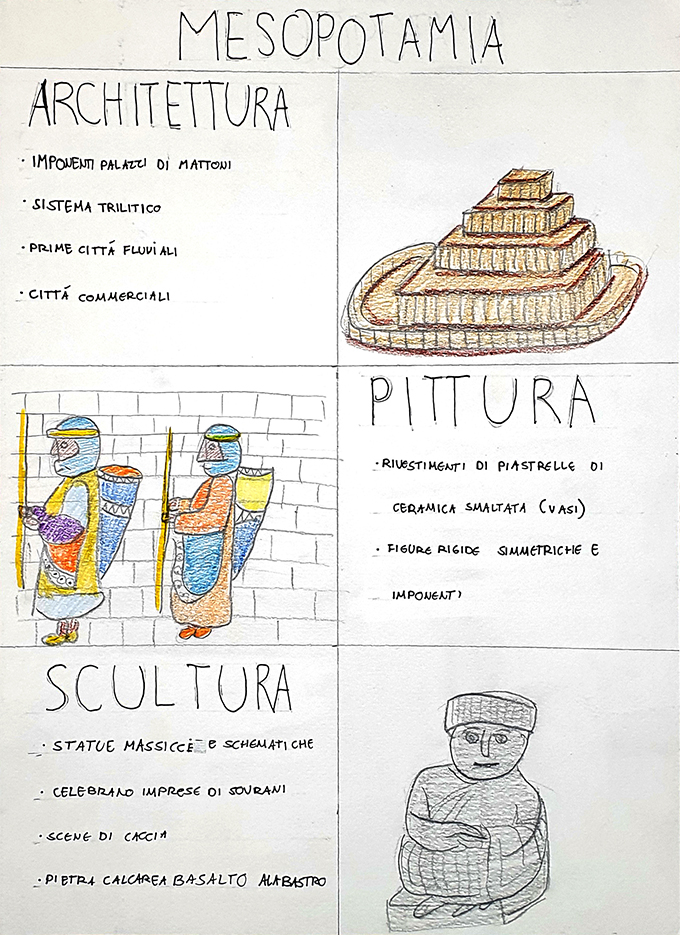 MESOPOTAMIA
ARCHITETTURA
· IMPONENTI PALAZZI DI MATTONI
· SISTEMA TRILITICO
· PRIME CITTÁ FLUVIALI
· CITTÁ COMMERCIALI
PITTURA
· RIVESTIMENTI DI PIASTRELLE DI
CERAMICA SMALTATA (VASI)
· FIGURE RIGIDE SIMMETRICHE E
IMPONENTI
SCULTURA
· STATUE MASSICCE E SCHEMATICHE
· CELEBRANO IMPRESE DI SOVRANI
· SCENE DI CACCIA
· PIETRA CALCAREA BASALTO ALABASTRO